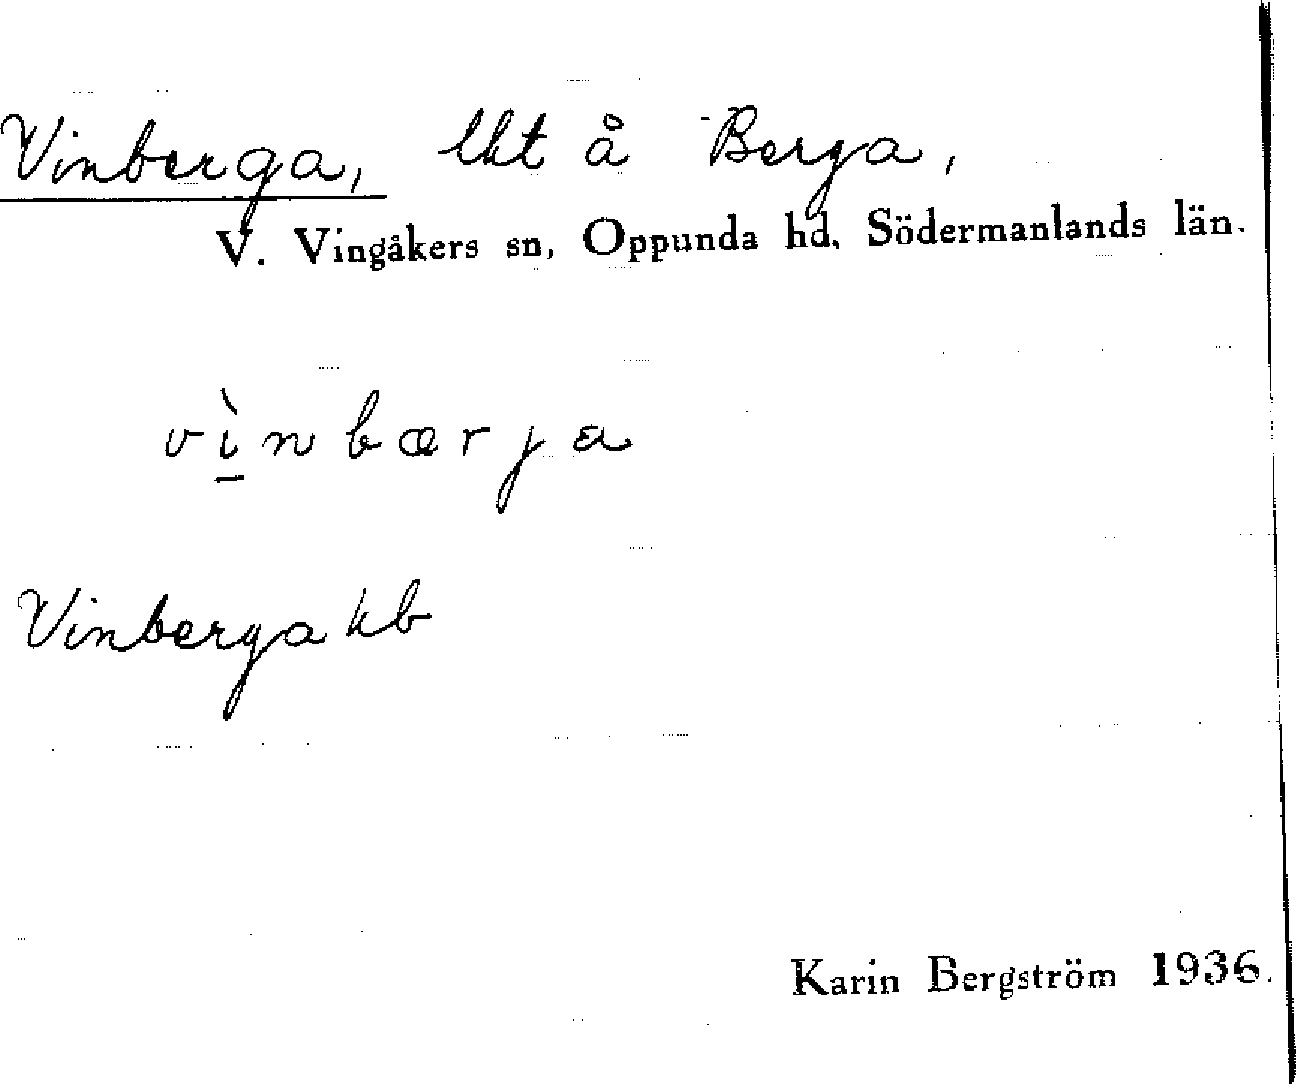 Vinberga, lht å Berga,
V. Vingåkers sn, Oppunda hd, Södermanlands län.
vì̠nbærja
Vinberga kb
Karin Bergström 1936.